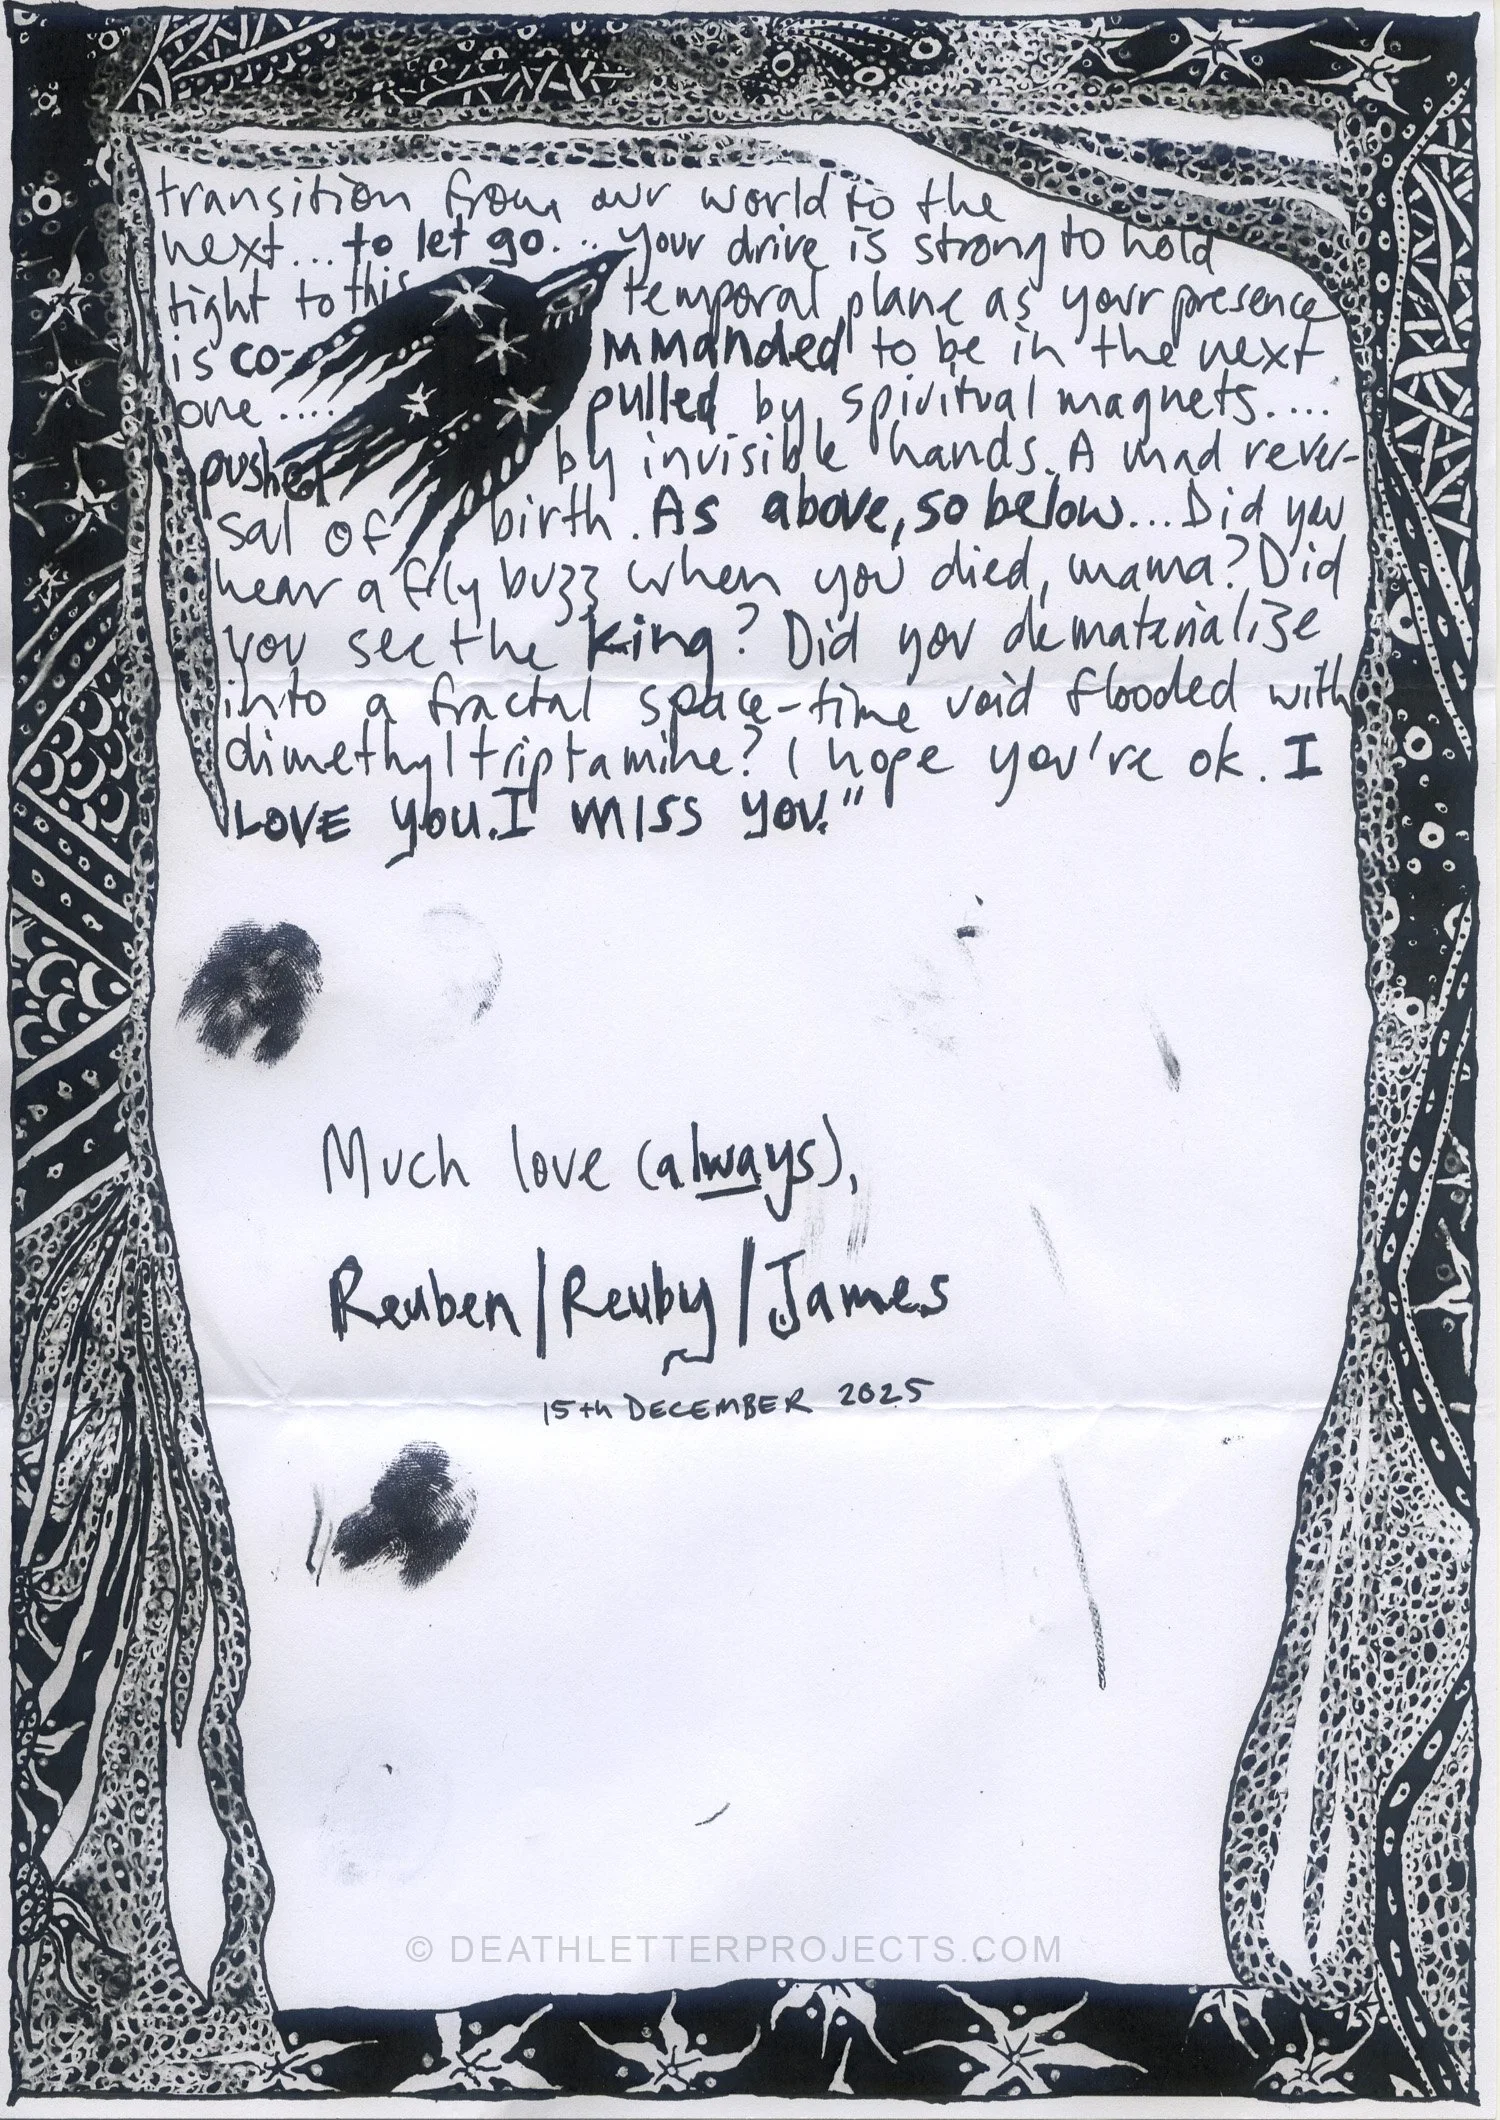 transition from our world to the
next... to let go... your drive is strong to hold
tight to this temporal plane as your presence
is co-mmanded to be in the next
one.... pulled by spiritual magnets....
pushed by invisible hands. A mad rever-
sal of birth. As above, so below... Did you
hear a fly buzz when you died, mama? Did
you see the king? Did you dematerialize
into a fractal space-time void flooded with
dimethyltriptamine? I hope you're ok. I
LOVE you. I MISS YOU."
Much love (always),
Reuben/Reuby/James
15th DECEMBER 2025
© DEATHLETTERPROJECTS.COM